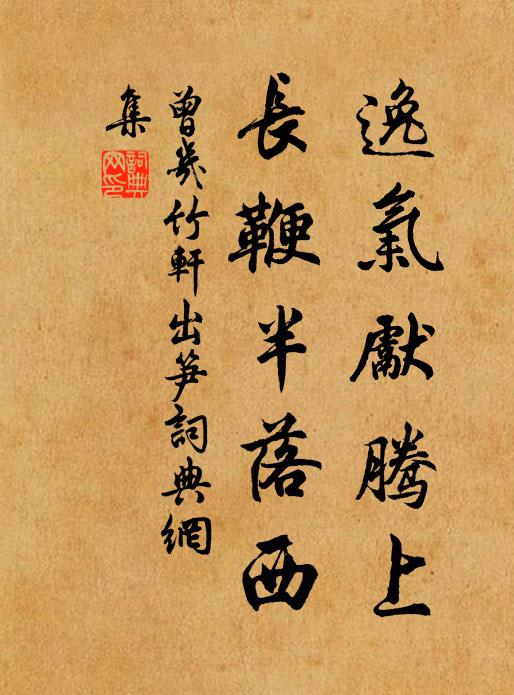 逸氣獻騰上
長鞭半落西
曾幾竹軒出笋詞典網
集
詞典網印